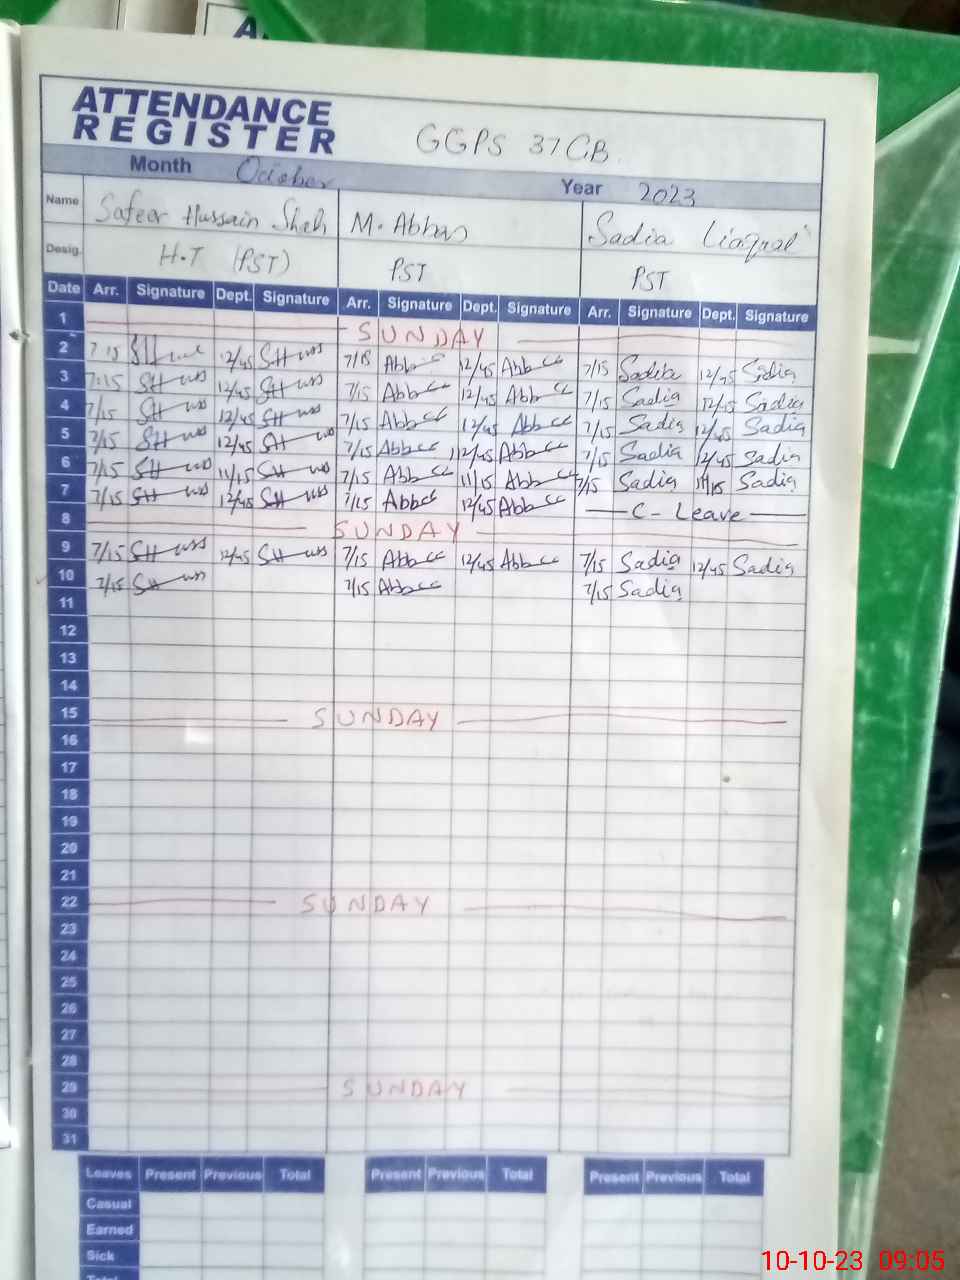 A
ATTENDANCE
REGISTER
GGPS 37 GB.
Month October Year 2023
Name Safeer Hussain Shah M. Abbas Sadia Liaqat
Desig. H.T (PST) PST PST
Date Arr. Signature Dept. Signature Arr. Signature Dept. Signature Arr. Signature Dept. Signature
1 SUNDAY
2 7/15 12/45 7/15 Abbas 12/45 Abbas 7/15 Sadia 12/45 Sadia
3 7:15 12/45 7/15 Abbas 12/45 Abbas 7/15 Sadia 12/45 Sadia
4 7/15 12/45 7/15 Abbas 12/45 Abbas 7/15 Sadia 12/45 Sadia
5 7/15 12/45 7/15 Abbas 12/45 Abbas 7/15 Sadia 12/45 Sadia
6 7/15 11/15 7/15 Abbas 11/15 Abbas 7/15 Sadia 11/15 Sadia
7 7/15 12/45 7/15 Abbas 12/45 Abbas C - Leave
8 SUNDAY
9 7/15 12/45 7/15 Abbas 12/45 Abbas 7/15 Sadia 12/45 Sadia
10 7/15 7/15 Abbas 7/15 Sadia
11
12
13
14
15 SUNDAY
16
17
18
19
20
21
22 SUNDAY
23
24
25
26
27
28
29 SUNDAY
30
31
Leaves Present Previous Total Present Previous Total Present Previous Total
Casual
Earned
Sick
Total
10-10-23 09:05